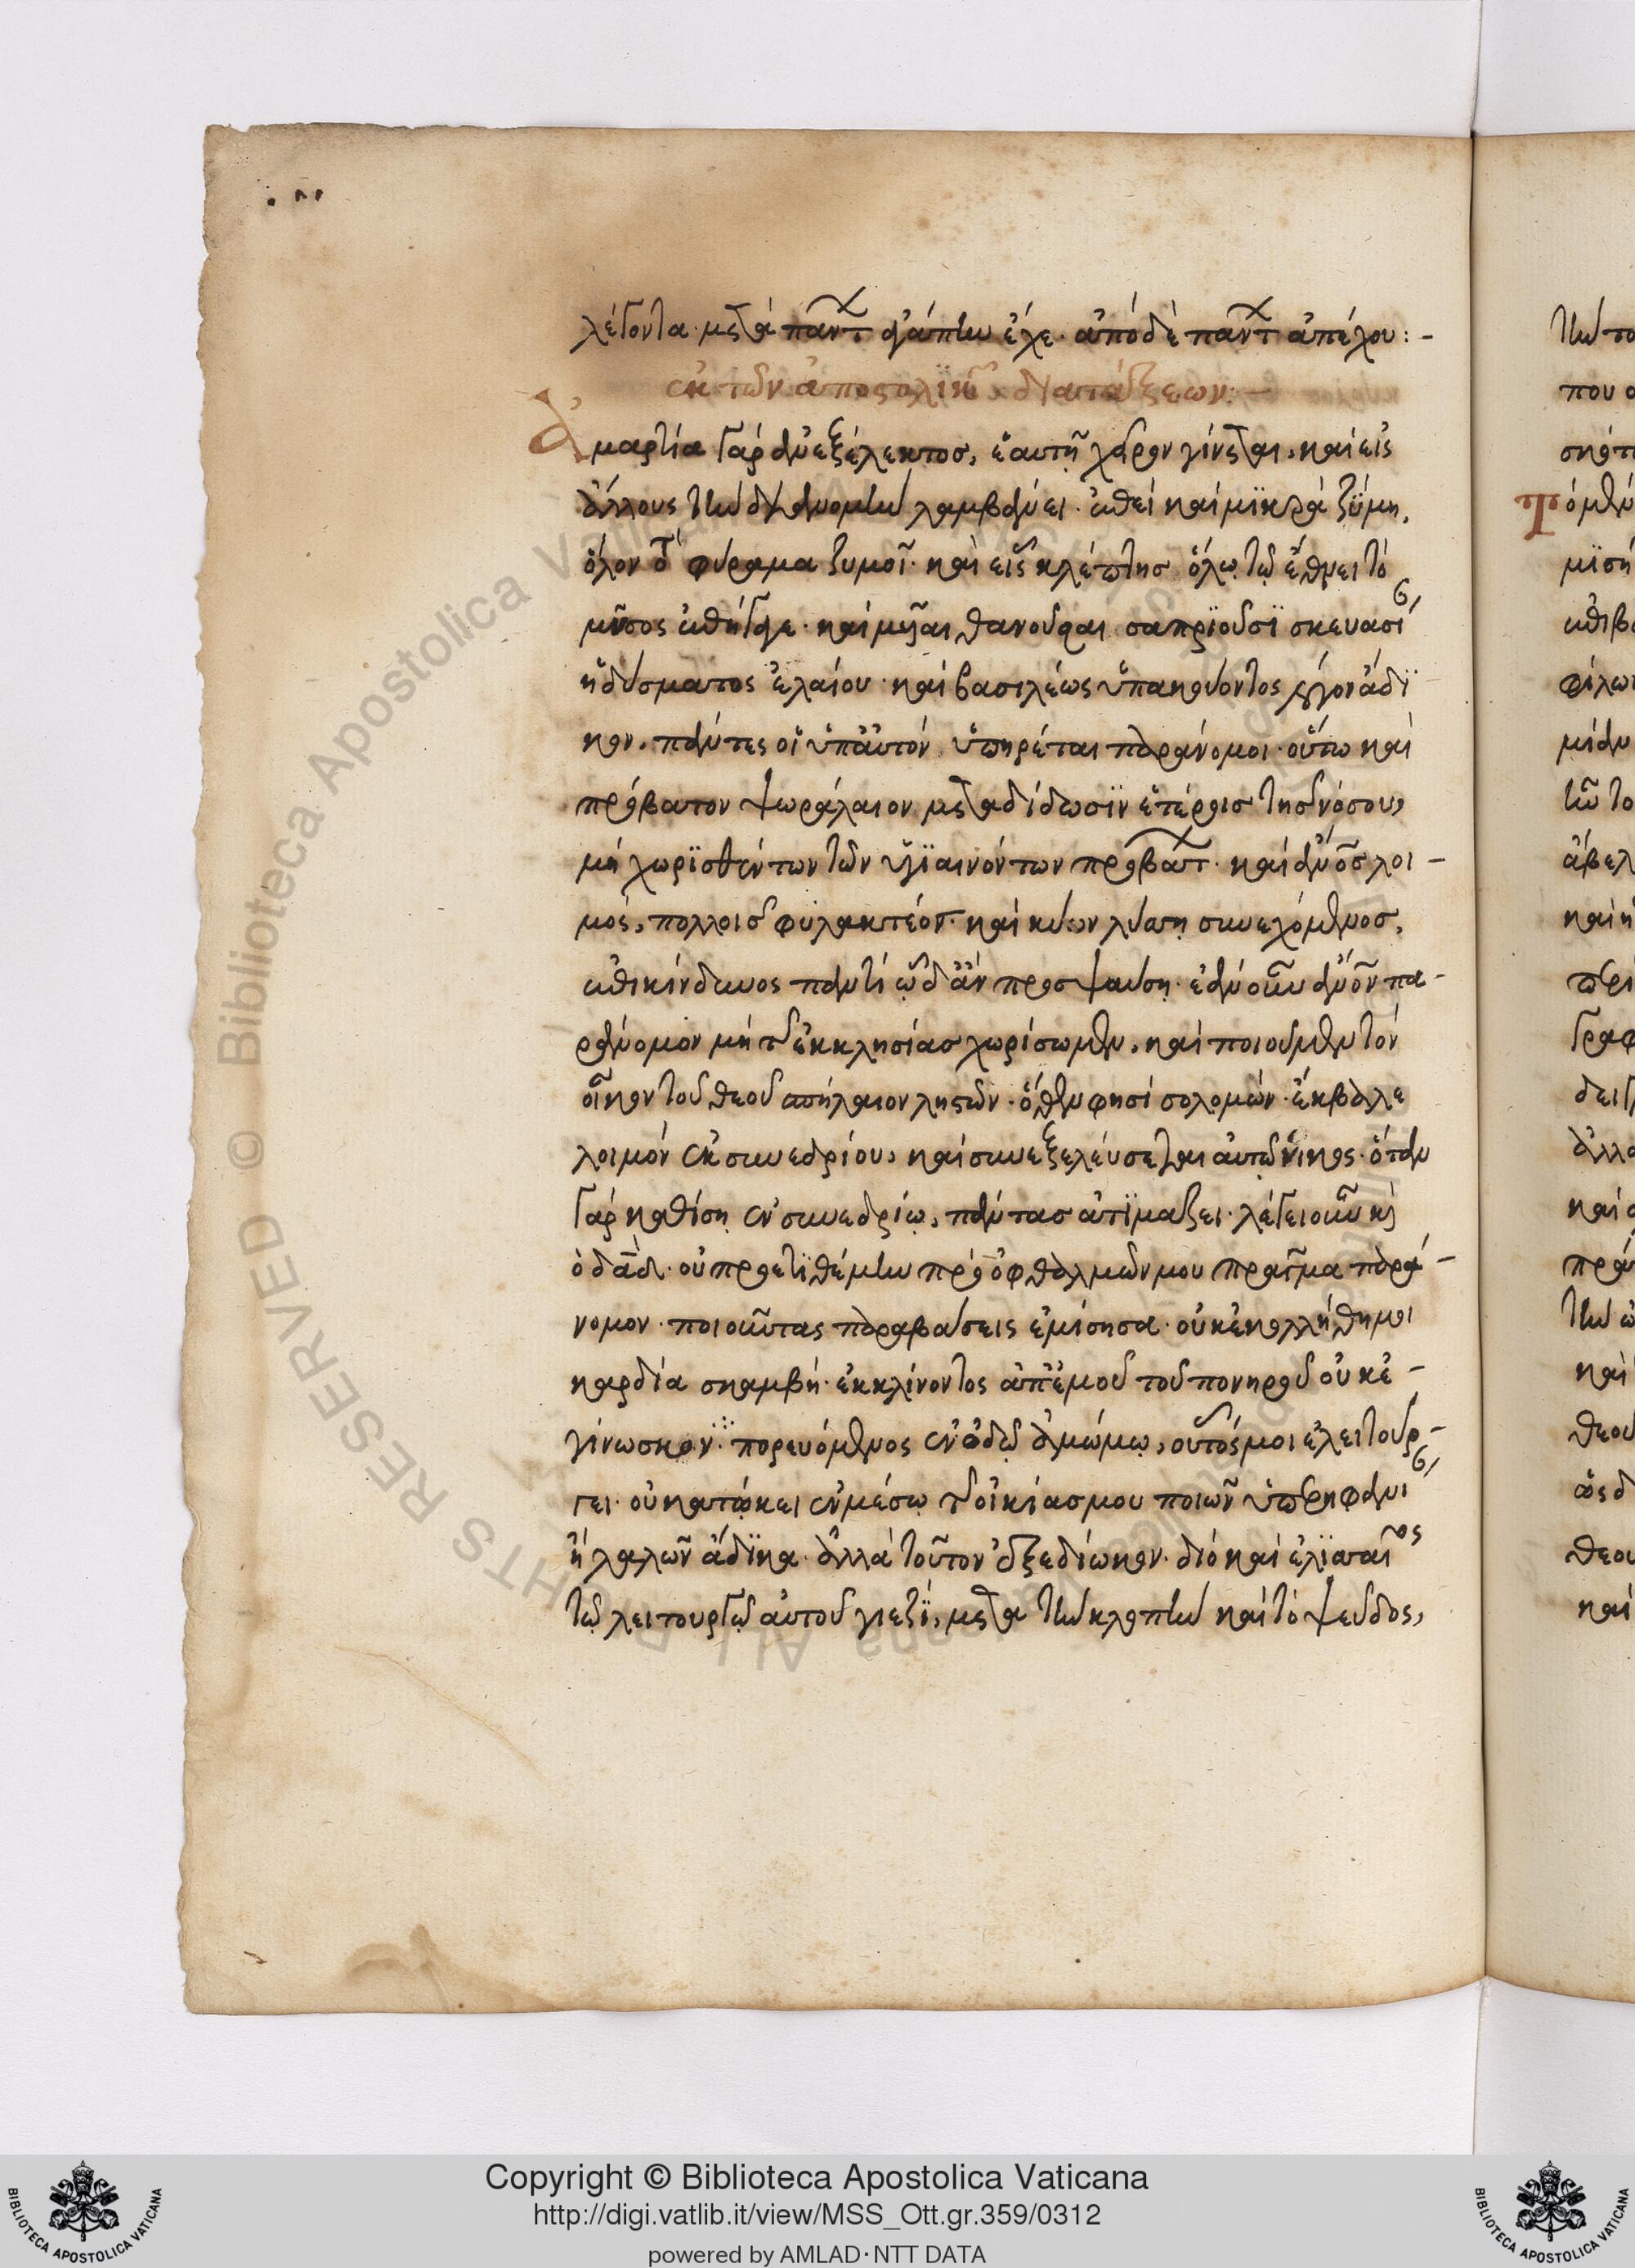 λέγοντα· μετὰ πάντ ἀγάπην ἔχε· ἀπὸ δὲ πάντ ἀπέχου:-
ἐκ τῶν ἀποστολϊκ διατάξεων:-
ἁμαρτία γὰρ ἀνεξέλεκτος, ἑαυτῆ χείρων γίνεται, καὶ εἰς
ἄλλους τὴν διανομὴν λαμβάνει· ἐπεὶ καὶ μϊκρὰ ζύμη,
ὅλον τὸ φύραμα ζυμοῖ· καὶ εἷς κλέπτης ὅλω τῷ ἔθνει τὸ
μῦσος ἐπήγαγε· καὶ μυῖαι θανοῦσαι σαπρϊοῦσϊ σκευασί
ἡδύσματος ἐλαίου· καὶ βασιλέως ὑπακούοντος λόγον ἄδϊ
κον, πάντες οἱ ὑπ' αὐτὸν ὑπηρέται παράνομοι· οὕτω καὶ
πρόβατον ψωραλαιον μεταδίδωσϊν ἑτέροις τῆς νόσου,
μὴ χωρϊσθέντων τῶν ὑγϊαινόντων προβάτ· καὶ ἄνος λοι-
μὸς, πολλοῖς φυλακτέος· καὶ κύων λύσση συνεχόμενος,
ἐπικίνδυνος παντὶ ᾧ δ' ἂν προσψαύση· ἐὰν οὖν ἄνον πα-
ράνομον μὴ τῆς ἐκκλησίας χωρίσωμεν, καὶ ποιοῦμεν τὸν
οἶκον τοῦ θεοῦ σπήλαιον ληστῶν· ὅθεν φησὶ σολομών· ἔκβαλε
λοιμὸν ἐκ συνεδρίου, καὶ συνεξελεύσεται αὐτῷ νῖκος· ὅταν
γὰρ καθίση ἐν συνεδρίω, πάντας ἀτϊμάζει· λέγει οὖν κὶ
ὁ δαδ· οὐ προετϊθέμην πρὸ ὀφθαλμῶν μου πρᾶγμα παρά-
νομον· ποιοῦντας παραβάσεις ἐμίσησα· οὐκ ἐκολλήθη μοι
καρδία σκαμβή· ἐκκλίνοντος ἀπ' ἐμοῦ τοῦ πονηροῦ οὐκ ἐ-
γίνωσκον· πορευόμενος ἐν ὁδῷ ἀμώμω, οὗτός μοι ἐλειτούρ-
γει· οὐ κατώκει ἐν μέσω τῆς οἰκίας μου ποιῶν ὑπερηφανι
ἢ λαλῶν ἄδϊκα· ἀλλὰ τοῦτον ἐξεδίωκον· διὸ καὶ ἐλϊσσαῖος
τῷ λειτουργῷ αὐτοῦ γιεζϊ, μετὰ τὴν κλοπὴν καὶ τὸ ψεῦδος,
Copyright © Biblioteca Apostolica Vaticana
http://digi.vatlib.it/view/MSS_Ott.gr.359/0312
powered by AMLAD·NTT DATA